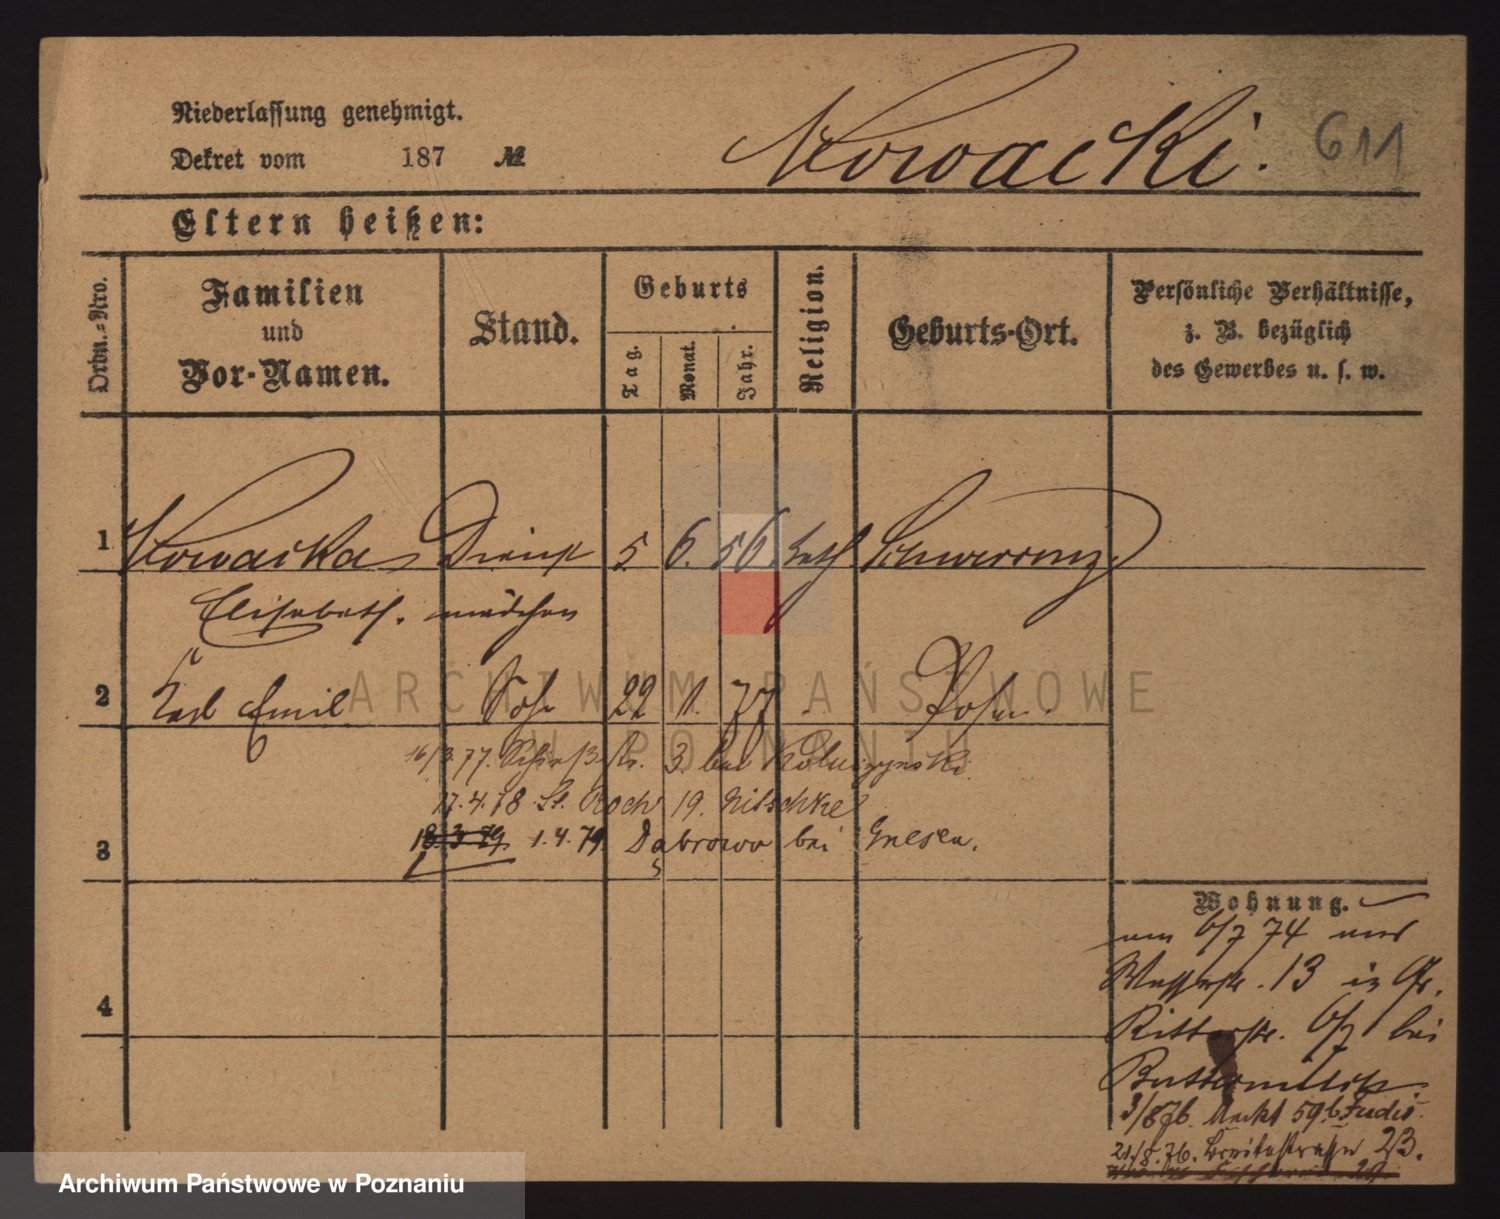 Niederlassung genehmigt.
Dekret vom 187 №
Nowacki. 611
Eltern heißen:
Ordn.-Nro.
Familien
und
Vor-Namen.
Stand.
Geburts
Tag.
Monat.
Jahr.
Religion.
Geburts-Ort.
Persönliche Verhältnisse,
z. B. bezüglich
des Gewerbes u. s. w.
1 Nowacka Dienst 5 6. 56 kath Schwersenz.
Elisabeth. mädchen
2 Karl Emil Sohn 22 11. 77 Posen.
ARCHIWUM PAŃSTWOWE
W POZNANIU
16/3.77. Schießstr. 3. bei
17.4.78 St. Roch 19. Nitschke
3 18.3.79 1.4.79 Dąbrowo bei Gnesen.
4
Wohnung.
6/7 74 aus
Wasserstr. 13 in Gr.
Ritterstr. 6/7 bei
Buttermilch
3/8 76. Markt 59 b.
21/8.76. Breitestraße 23.
Archiwum Państwowe w Poznaniu